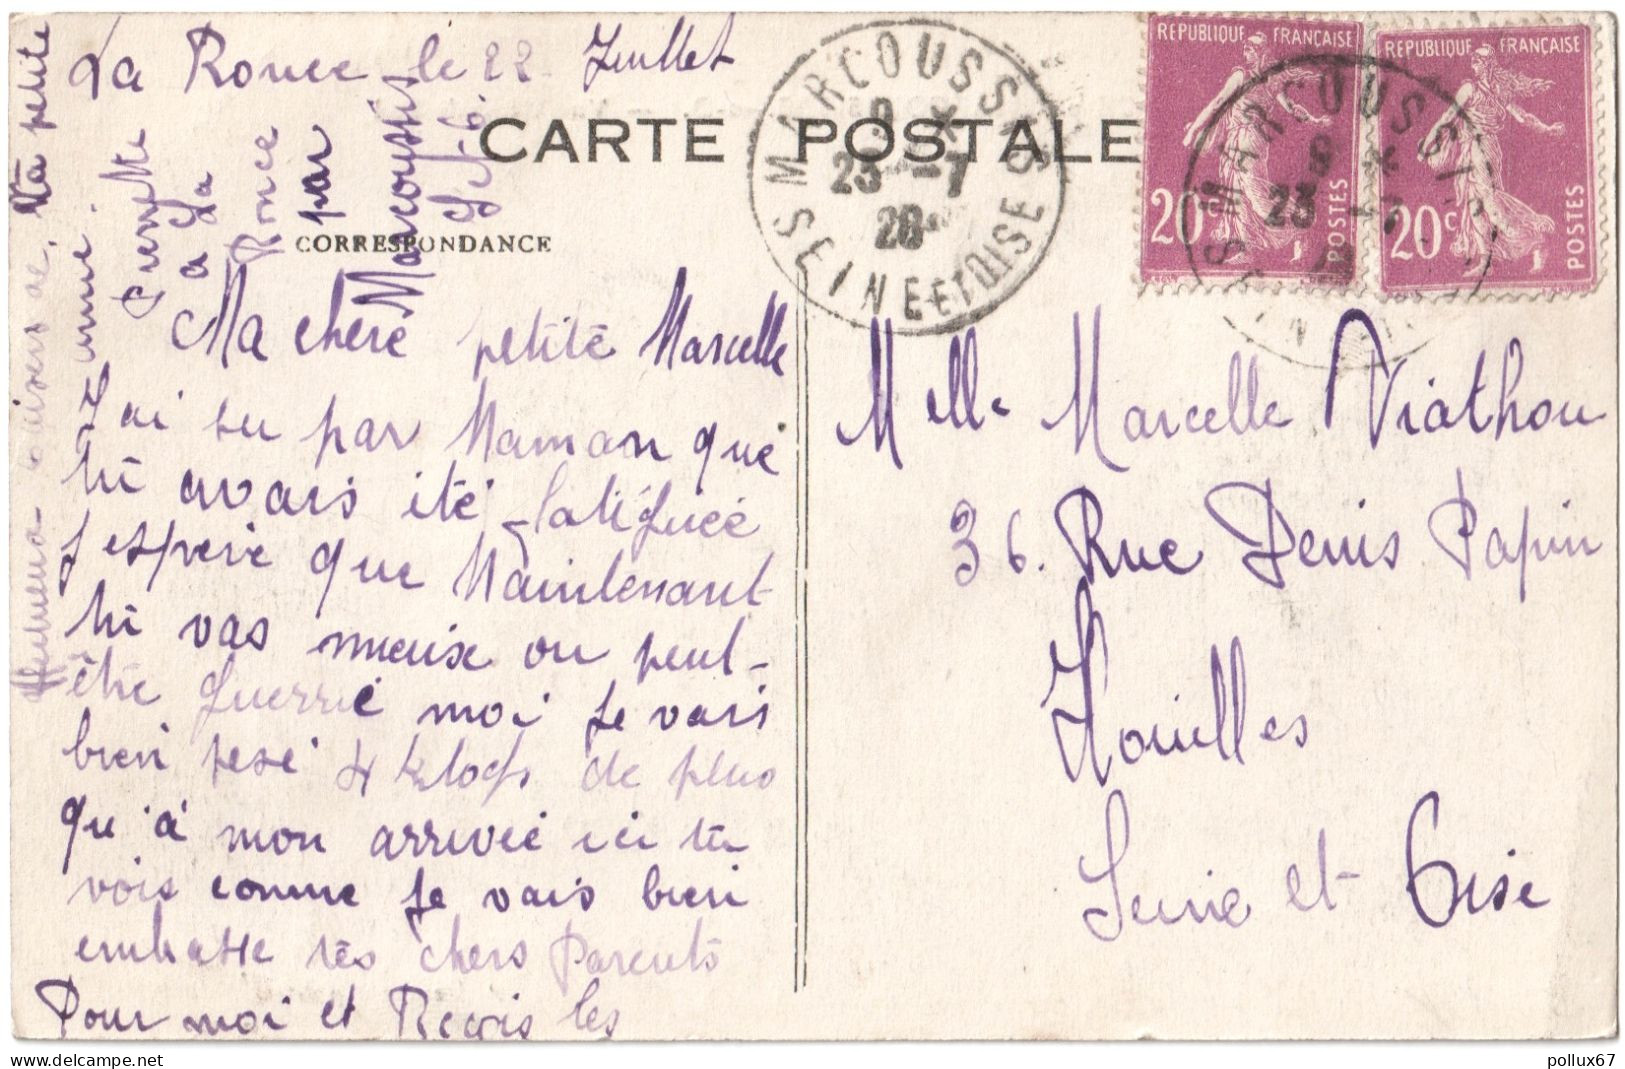 La Ronce le 22 Juillet
CARTE POSTALE
CORRESPONDANCE
Ma chère petite Marcelle
J'ai su par Maman que
tu avais été fatiguée
J'espere que Maintenant
tu vas mieux ou peut-
être guerrie moi je vais
bien pesé 4 kilogs de plus
qu'à mon arrivée ici tu
vois comme je vais bien
embrasse tes chers Parents
Pour moi et Reçois les
baisers de ta petite
amie.
à La
Ronce
par
Marcoussis
S.-et-O.
MARCOUSSIS
23 -7
28
SEINE-ET-OISE
REPUBLIQUE FRANÇAISE
20c
POSTES
REPUBLIQUE FRANÇAISE
20c
POSTES
MARCOUSSIS
23 -7
Melle Marcelle Viathou
36. Rue Denis Papin
Houilles
Seine et Oise
pollux67